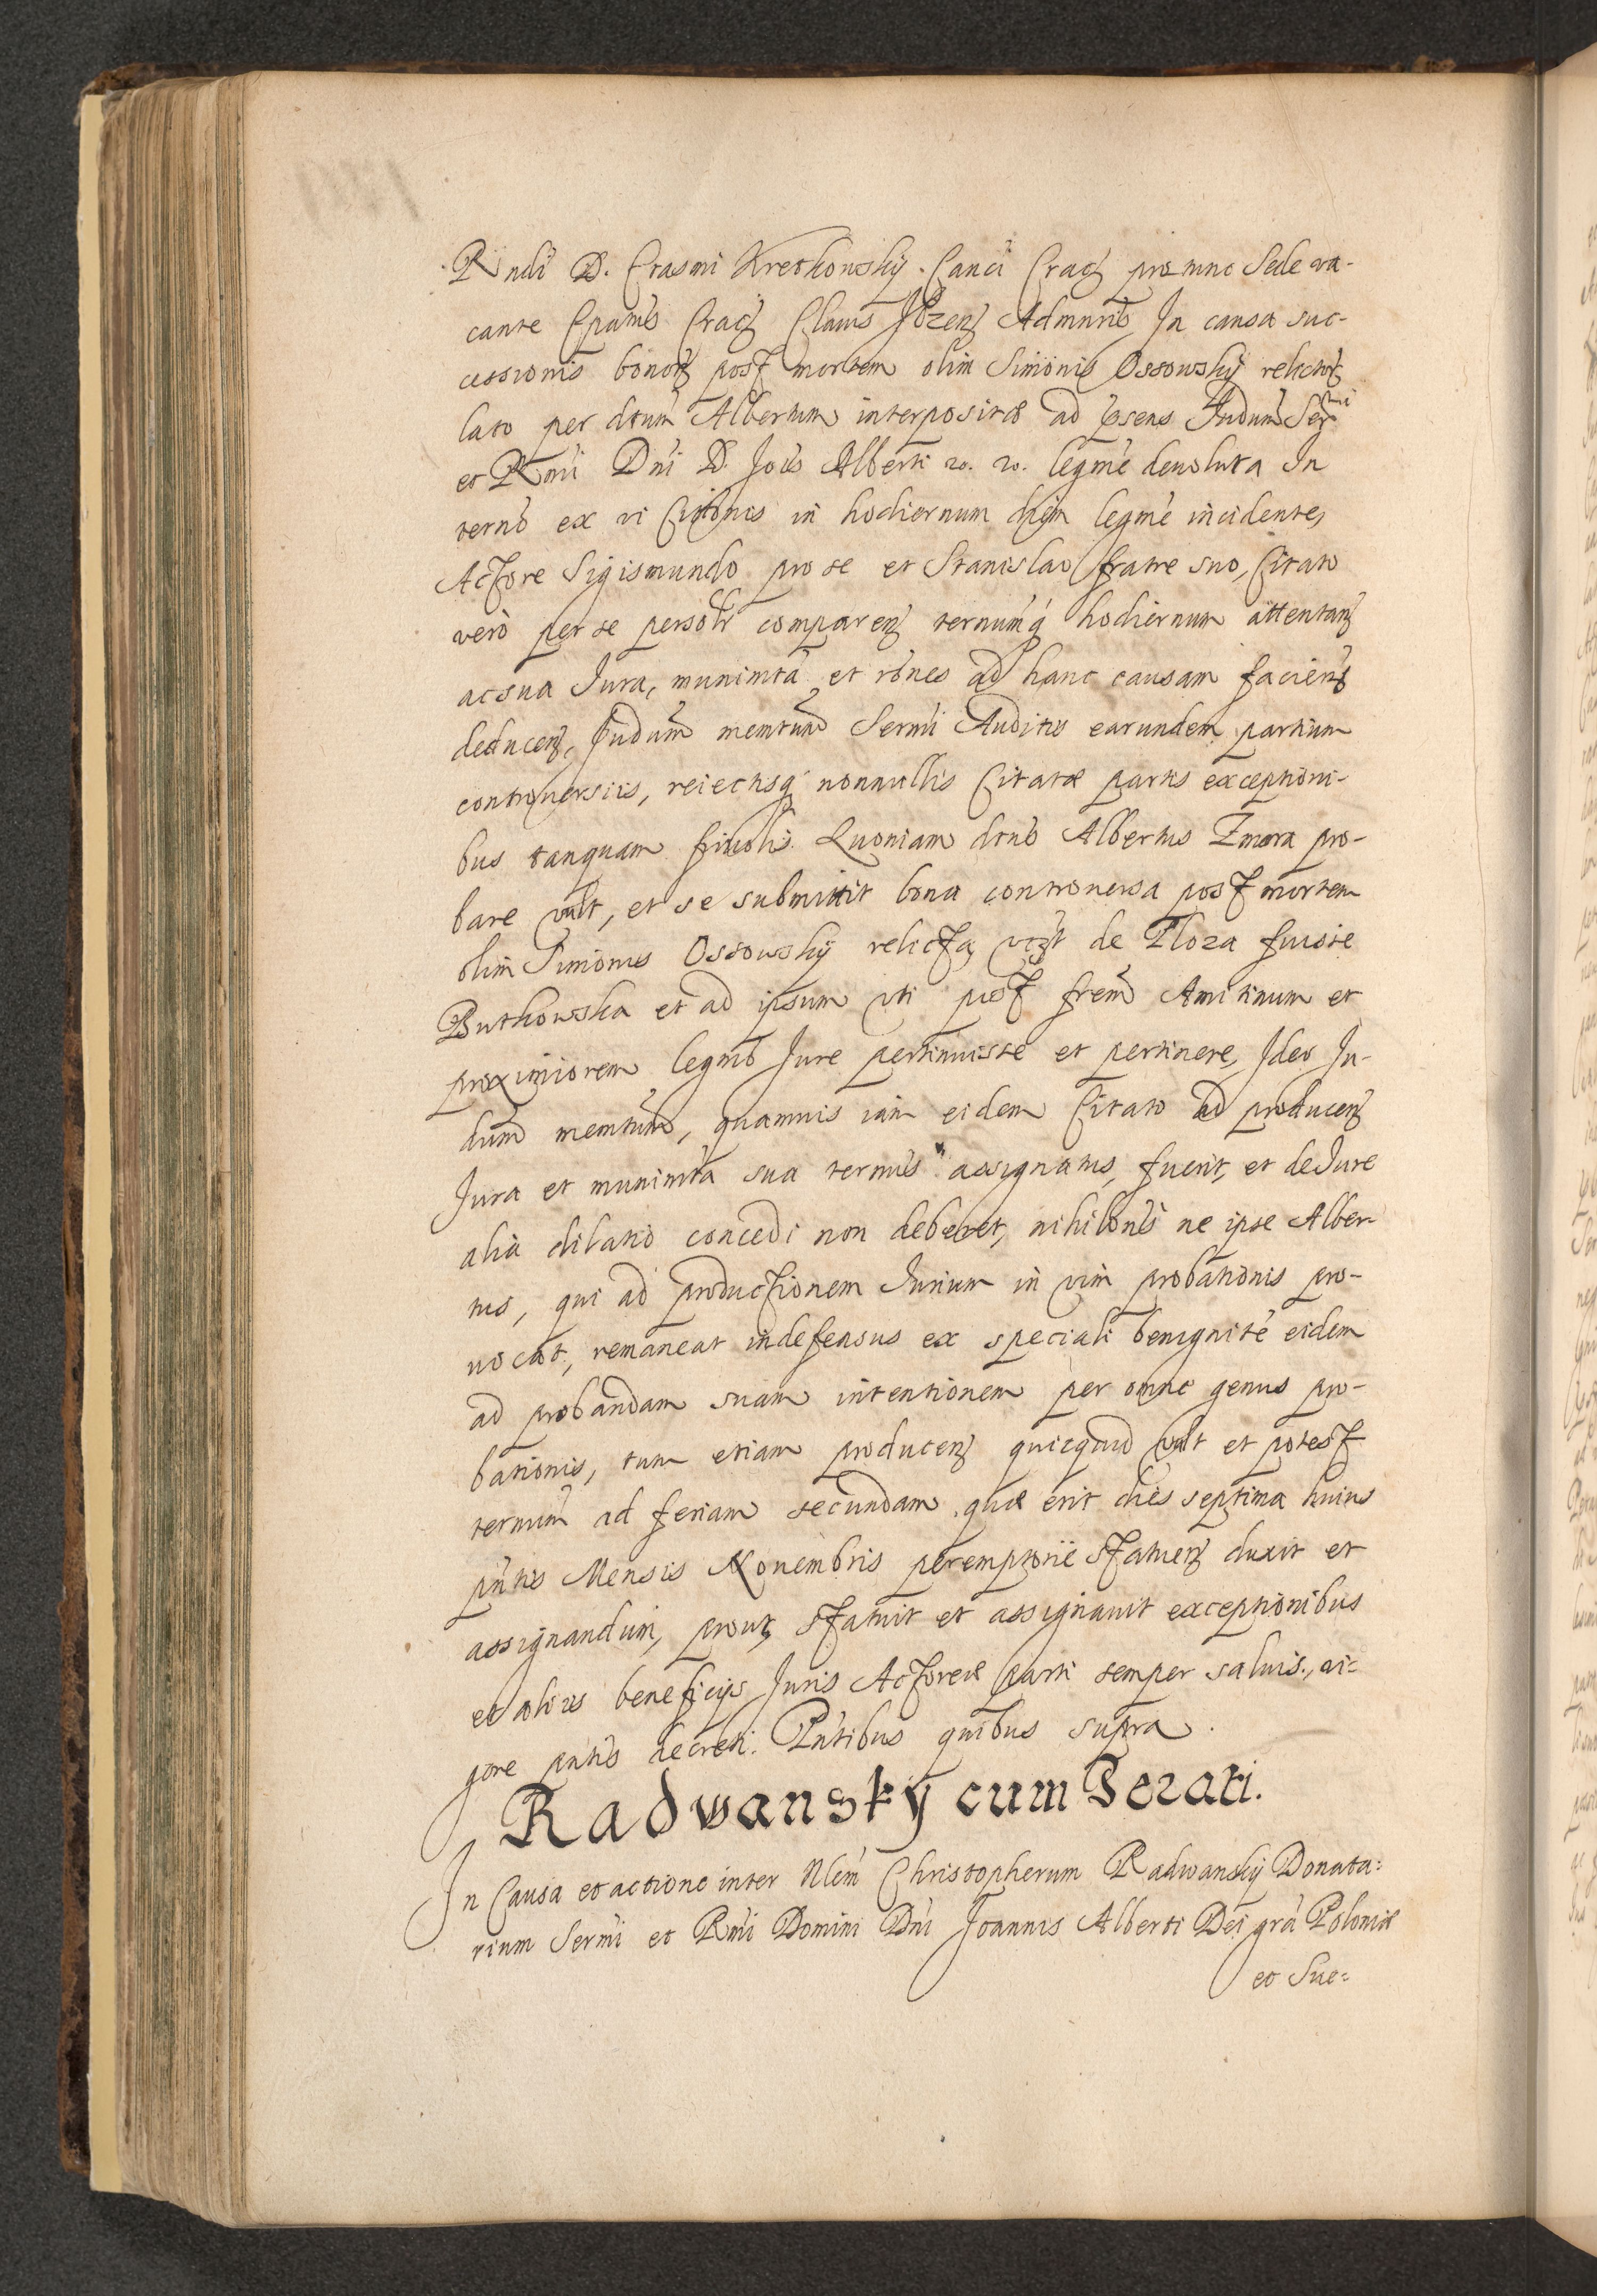 Rndi D. Erasmi Kretkowsky. Canci Crac pro nunc Sede va-
cante Epatus Crac Clavis Ilzen Admnris In causa suc-
cessionis bonor post mortem olim Simonis Ossowsky relictor
lato per dtum Albertum interposita ad psens Judum Sermi
et Rmi Dni D. Jois Alberti etc. etc. legme devoluta In
termo ex vi Citonis in hodiernum diem legme incidente,
Actore Sigismundo pro se et Stanislao fratre suo, Citato
vero per se persolr comparen termumq hodiernum attentan
ac sua Jura, munimta et rones ad hanc causam faciens
deducen, Judum memtum Sermi Auditis earundem partium
controversiis, reiectisq nonnullis Citatæ partis exceptioni-
bus tanquam frivolis. Quoniam dtus Albertus Zmora pro-
bare vult, et se submittit bona controversa post mortem
olim Simonis Ossowsky relicta, vizt de Ploza fuisse
Butkowska et ad ipsum uti post frem Amitinum et
proximiorem legmo Jure pertinuisse et pertinere, Ideo Ju-
dum memtum, quamvis iam eidem Citato ad producen
Jura et munimta sua termus assignatus, fuerit, et de Jure
alia dilatio concedi non deberet, nihilomi ne ipse Alber-
tus, qui ad productionem Jurium in vim probationis pro-
vocat, remaneat indefensus ex speciali benignite eidem
ad probandam suam intentionem per omne genus pro-
bationis, tum etiam producen quicquid vult et potest
termum ad feriam secundam quæ erit dies septima huius
pntis Mensis Novembris peremptorie statuen duxit et
assignandum, prout, statuit et assignavit exceptionibus
et aliis beneficijs Juris Actoreæ parti semper salvis, vi=
gore pntis decreti. Pntibus quibus supra.
Radwansky cum Serati.
In Causa et actione inter Nlem Christopherum Radwansky Donata=
rium Sermi et Rmi Domini Dni Joannis Alberti Dei gra Poloniæ
et Sue=